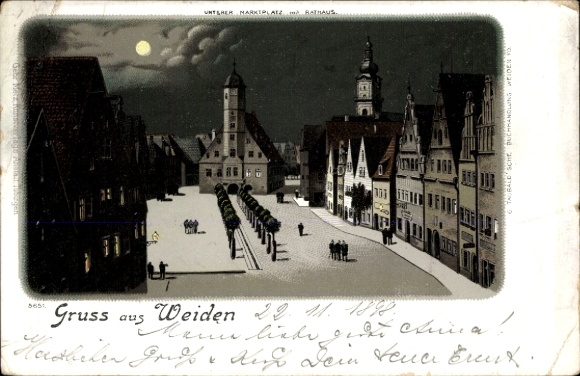 UNTERER MARKTPLATZ MIT RATHAUS.
C. TAUBALD'SCHE BUCHHANDLUNG, WEIDEN
5651.
Gruss aus Weiden
22. 11. 1898
Meine liebe gute Anna!
Herzlichen Gruß & Kuß Dein treuer Ernst.